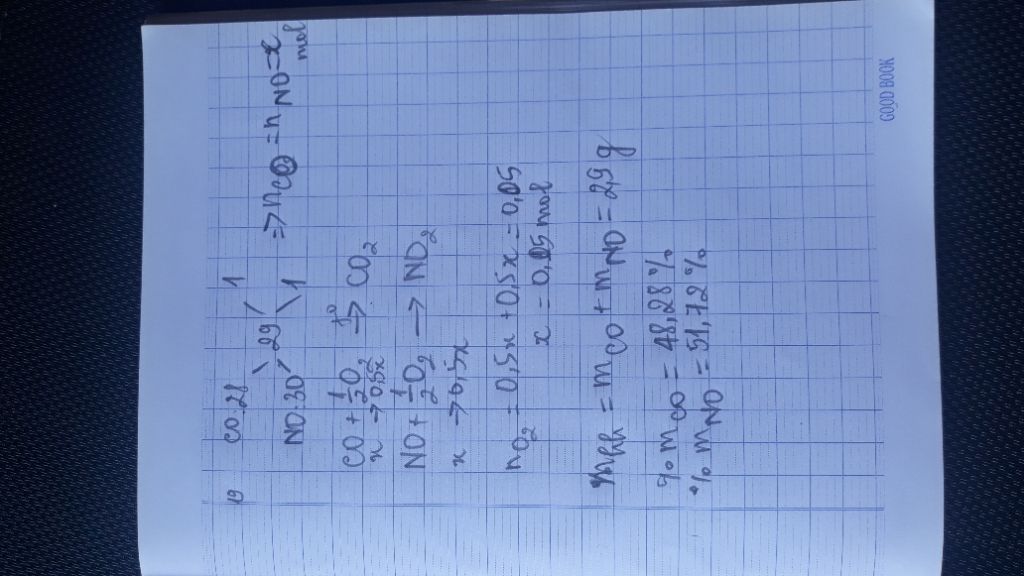 19 CO: 28 1
29 ⇒ nCO = nNO = x mol
NO: 30 1
CO + 1/2 O2 t° → CO2
x → 0,5x
NO + 1/2 O2 → NO2
x → 0,5x
nO2 = 0,5x + 0,5x = 0,05
x = 0,05 mol
mhh = mCO + mNO = 2,9 g
% mCO = 48,28%
% mNO = 51,72%
GOOD BOOK